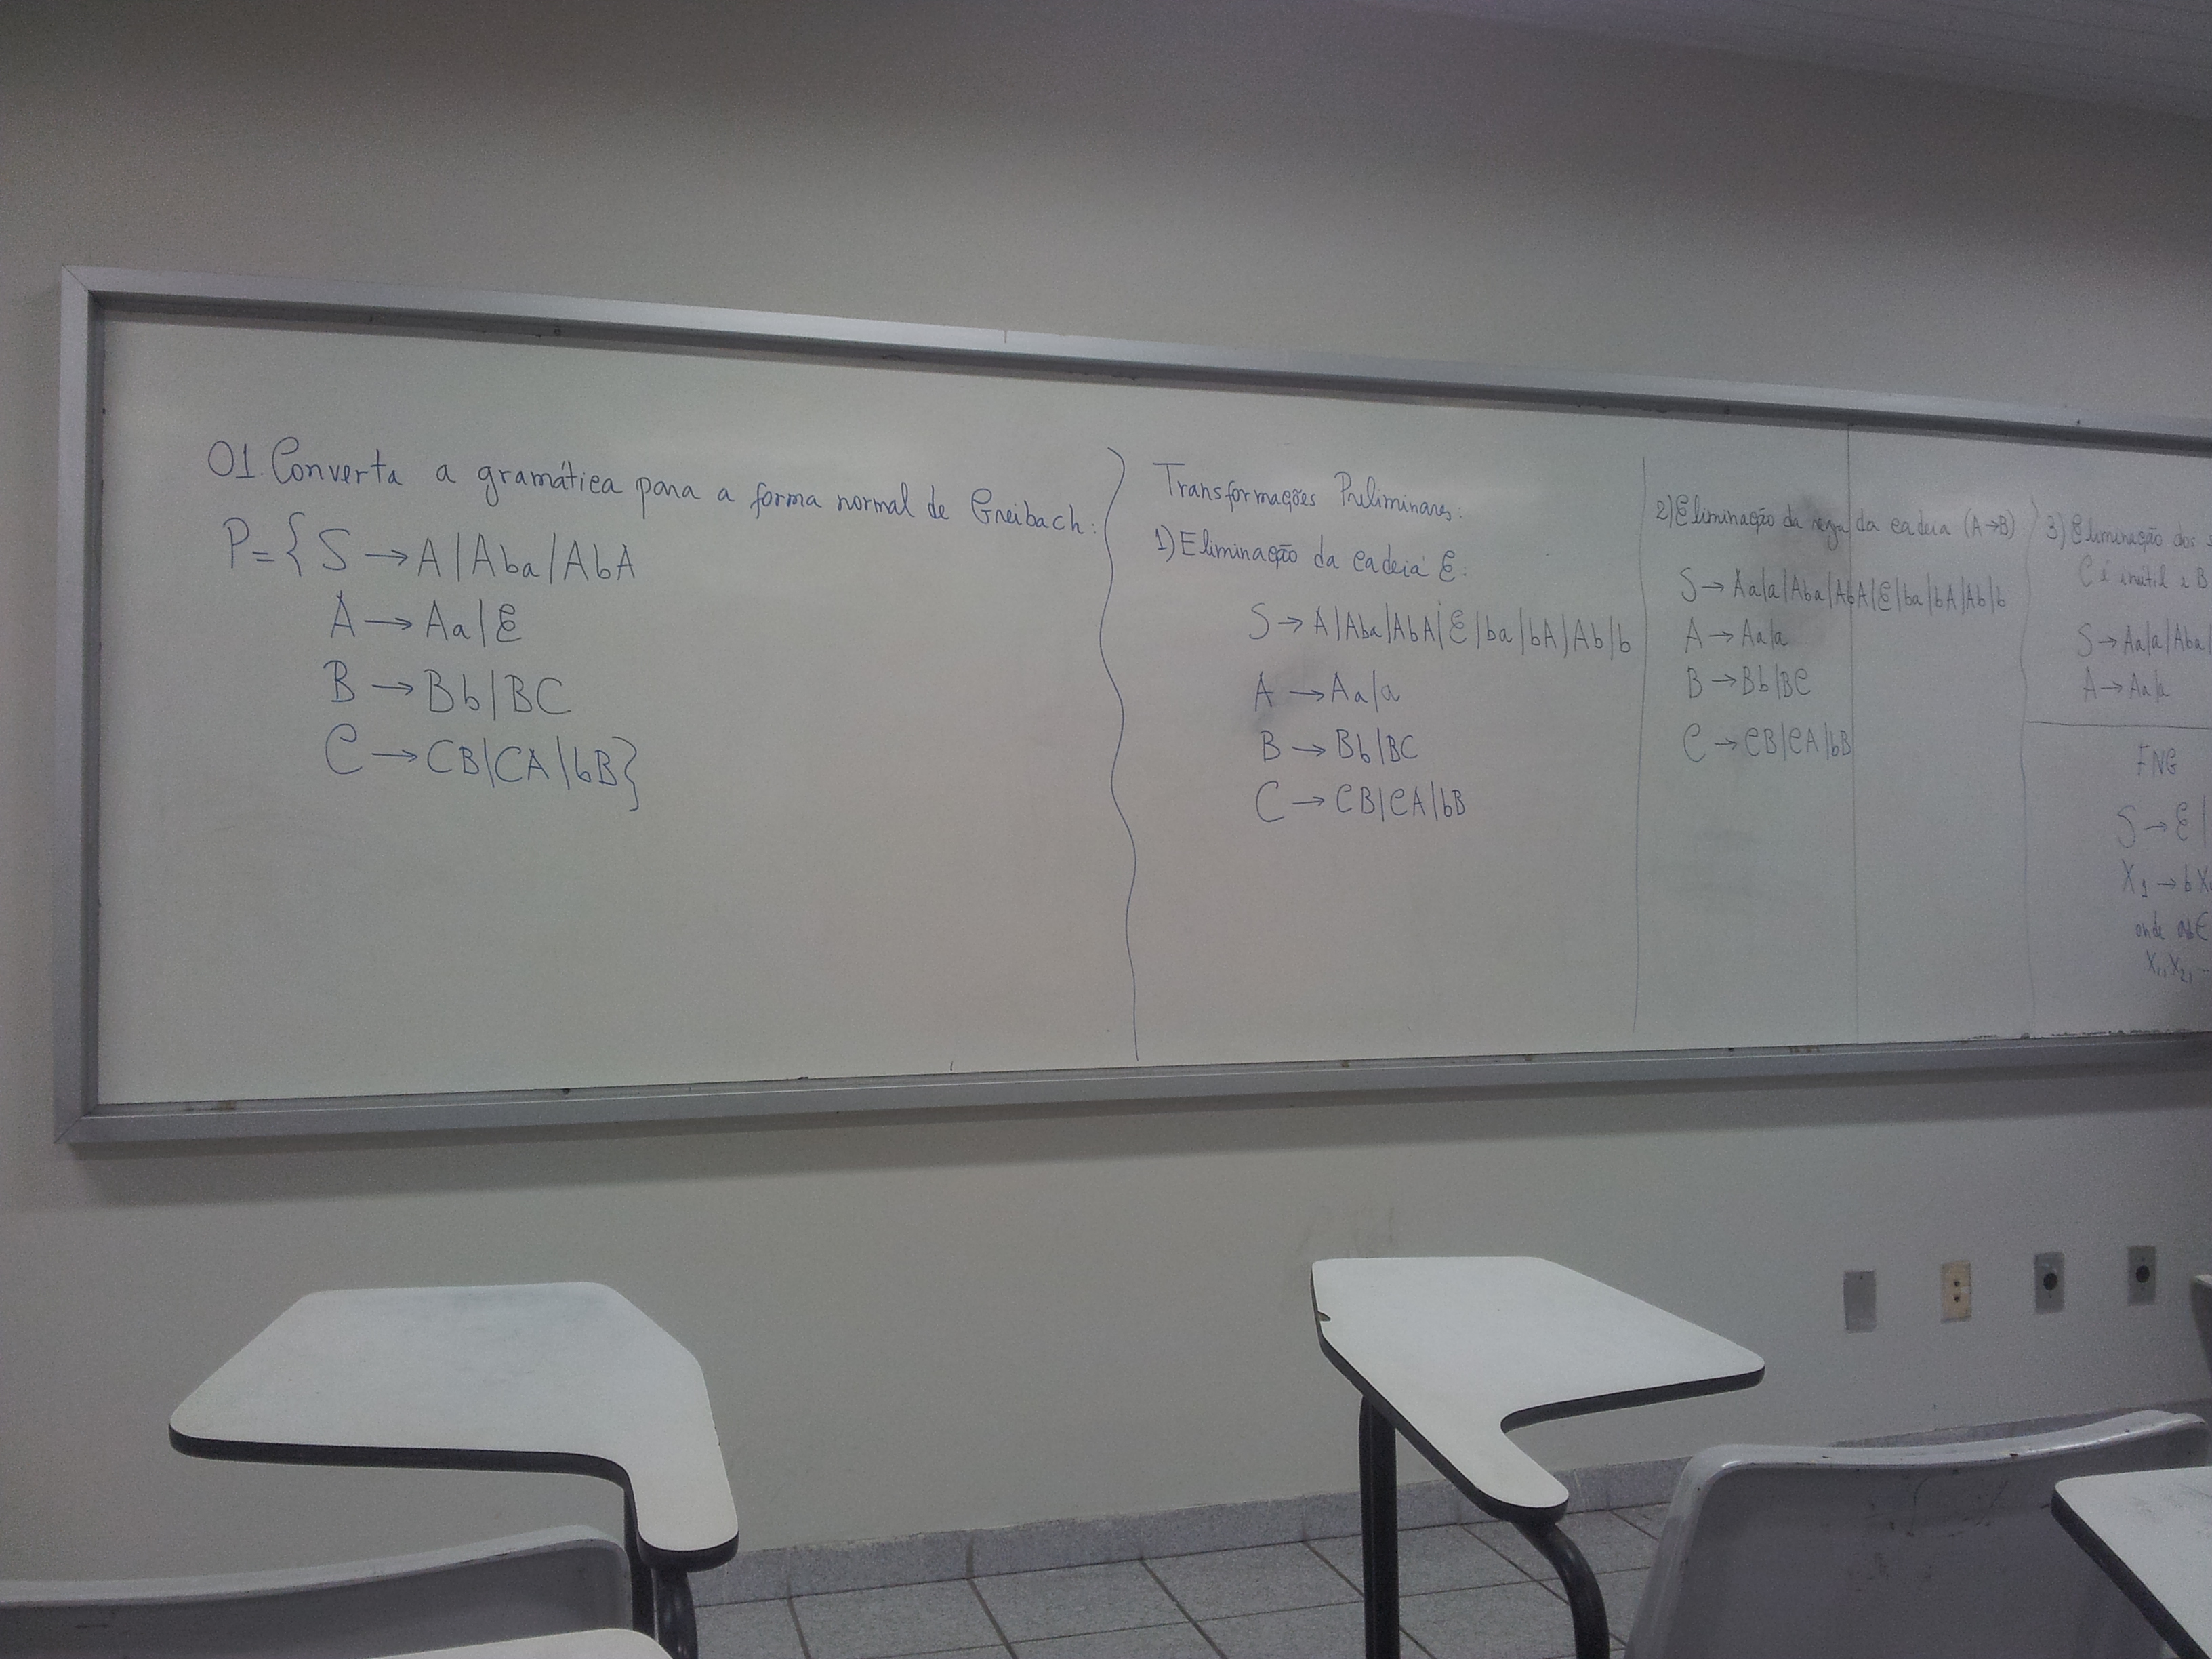 01. Converta a gramática para a forma normal de Greibach:
P = { S → A | Aba | AbA
A → Aa | ε
B → Bb | BC
C → CB | CA | bB }
Transformações Preliminares:
1) Eliminação da cadeia ε:
S → A | Aba | AbA | ε | ba | bA | Ab | b
A → Aa | a
B → Bb | BC
C → CB | CA | bB
2) Eliminação da regra da cadeia (A → B)
S → Aa | a | Aba | AbA | ε | ba | bA | Ab | b
A → Aa | a
B → Bb | BC
C → CB | CA | bB
3) Eliminação dos
C é inútil e B
S → Aa | a | Aba |
A → Aa | a
FNG
S → ε |
X₁ → b
onde
X₁, X₂,